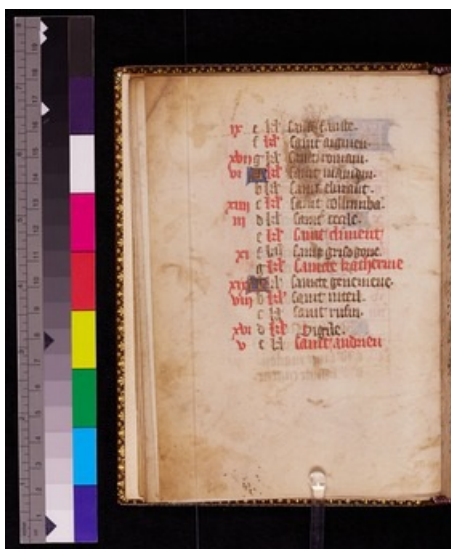 ix e kl Saint
f kl Saint aignien.
xvii g kl Saint romain.
vi A kl Saint
b kl Saint
xiiii c kl Saint collumba.
iii d kl Saint cecile.
e kl Saint climent
xi f kl Saint grisogone.
g kl Saincte katherine
xix A kl Saincte genevieve.
viii b kl Saint
c kl Saint rufin.
xvi d kl Vigile.
v e kl Saint andrieu